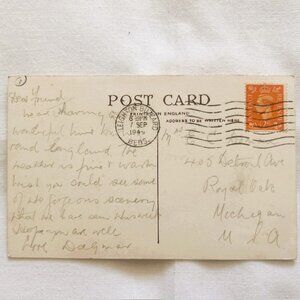 POST CARD
PRINTED IN ENGLAND.
ADDRESS TO BE WRITTEN HERE.
LEIGHTON BUZZARD
SEP
BEDS.
Dear Friend
having a
wonderful time
England. The
weather is fine & warm
wish you could see some
of the gorgeous scenery
that we have seen
you are well
Love Dagmar
405 Detroit Ave
Royal Oak
Michigan
U S A